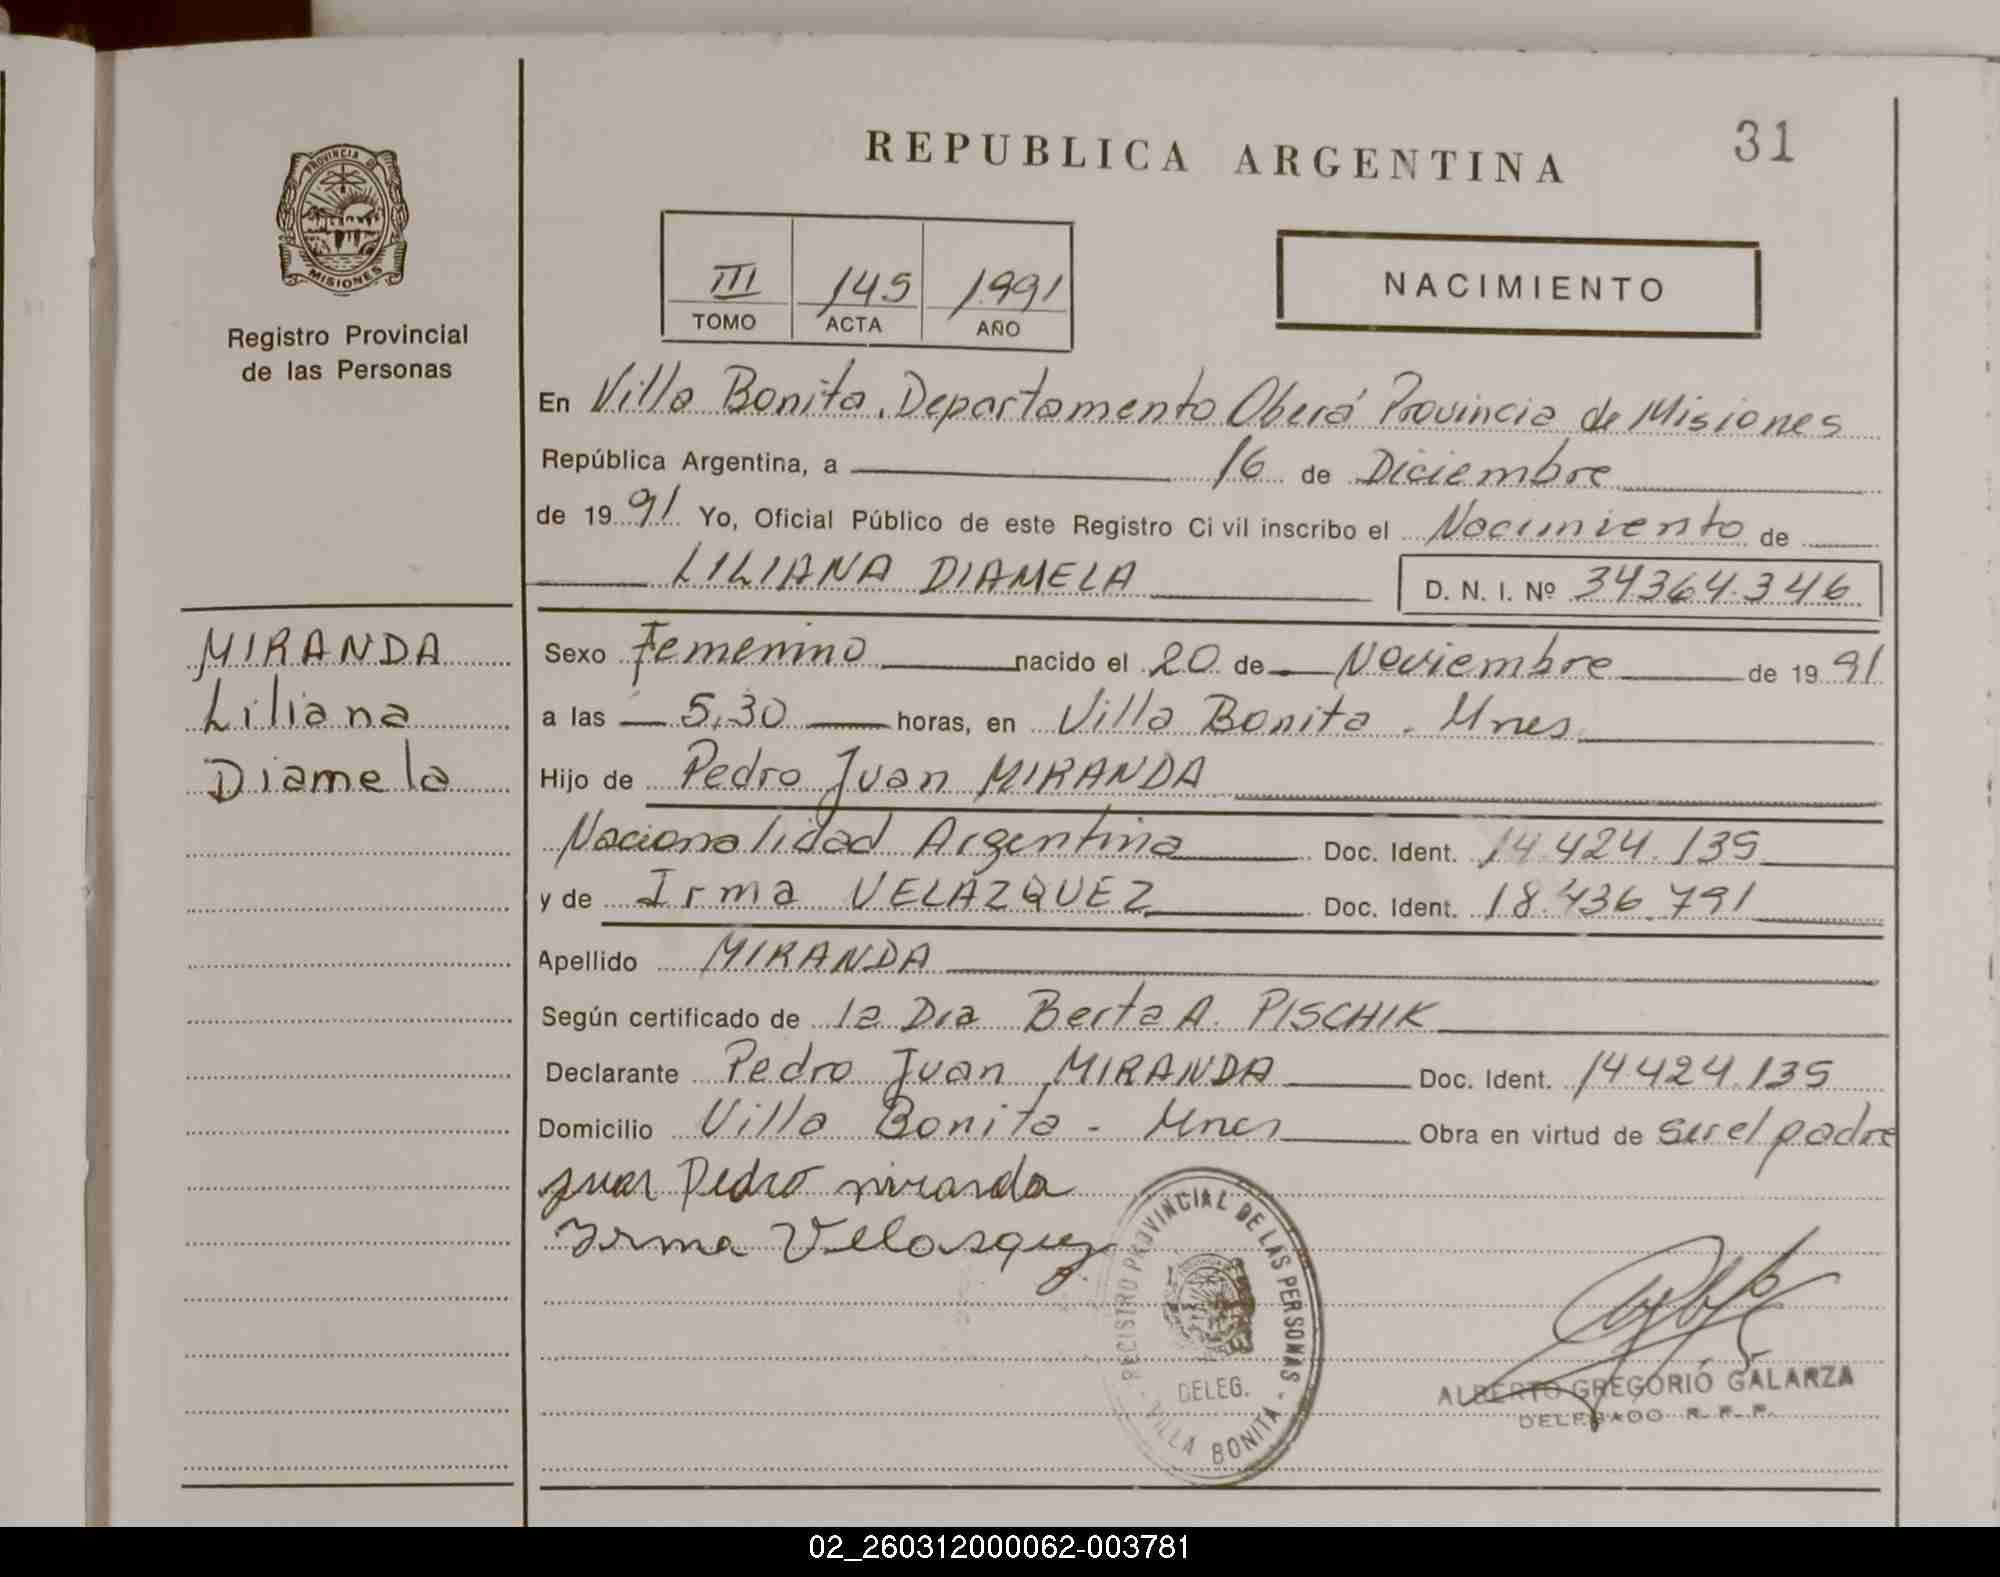 REPUBLICA ARGENTINA
31
PROVINCIA D
MISIONES
Registro Provincial
de las Personas
III 145 1991
TOMO ACTA AÑO
NACIMIENTO
En Villa Bonita, Departamento Oberá Provincia de Misiones
República Argentina, a 16 de Diciembre
de 1991 Yo, Oficial Público de este Registro Civil inscribo el Nacimiento de
LILIANA DIAMELA D. N. I. Nº 34364.346
MIRANDA
Liliana
Diamela
Sexo Femenino nacido el 20 de Noviembre de 1991
a las 5,30 horas, en Villa Bonita - Mnes
Hijo de Pedro Juan MIRANDA
Nacionalidad Argentina Doc. Ident. 14.424.135
y de Irma VELAZQUEZ Doc. Ident. 18.436.791
Apellido MIRANDA
Según certificado de la Dra Berta A. PISCHIK
Declarante Pedro Juan MIRANDA Doc. Ident. 14424.135
Domicilio Villa Bonita - Mnes Obra en virtud de ser el padre
juan Pedro miranda
Irma Velasquez
REGISTRO PROVINCIAL DE LAS PERSONAS
DELEG.
- VILLA BONITA -
ALBERTO GREGORIO GALARZA
DELEGADO R. P. P.
02_260312000062-003781